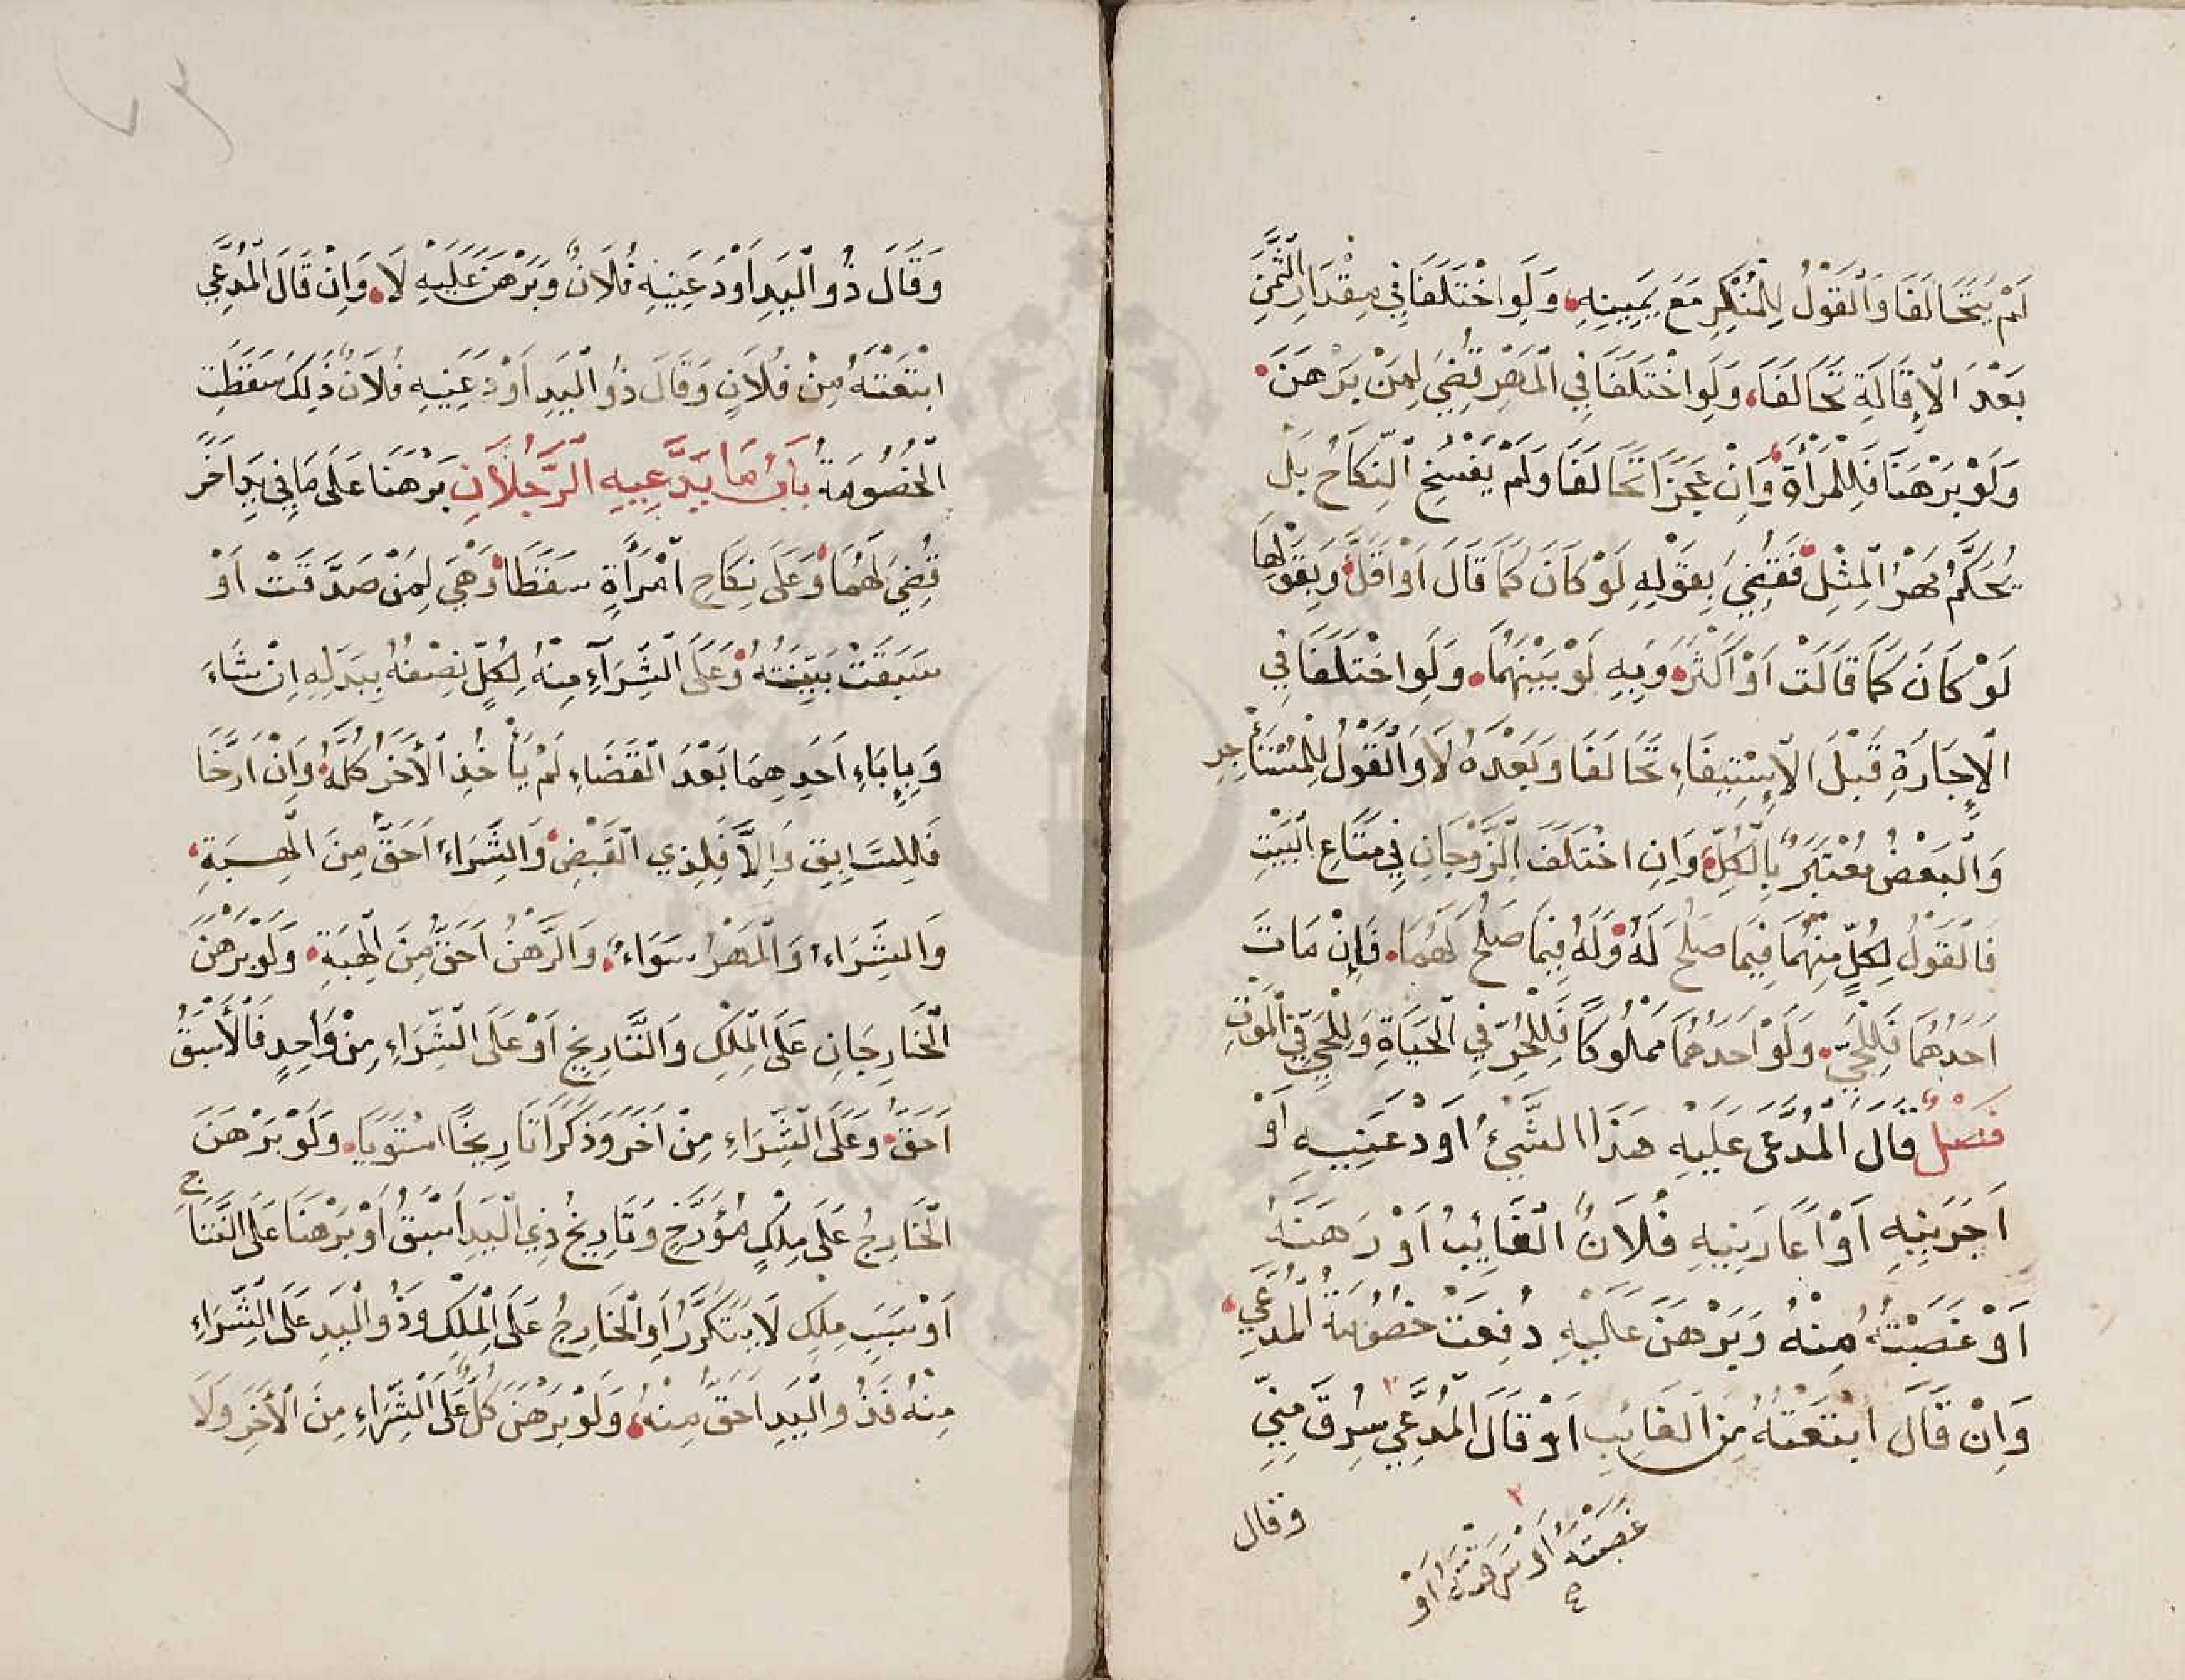 لَمْ يَتَحَالَفَا وَالْقَوْلُ لِلْمُنْكِرِ مَعَ يَمِينِهِ وَلَوِ اخْتَلَفَا فِي مِقْدَارِ الثَّمَنِ
بَعْدَ الْإِقَالَةِ تَحَالَفَا وَلَوِ اخْتَلَفَا فِي الْمَهْرِ قُضِيَ لِمَنْ بَرْهَنَ
وَلَوْ بَرْهَنَا فَلِلْمَرْأَةِ وَاِنْ عَجَزَا تَحَالَفَا وَلَمْ يَفْسُخِ النِّكَاحُ بَلْ
يُحَكَّمُ مَهْرُ الْمِثْلِ فَقُضِيَ بِقَوْلِهِ لَوْ كَانَ كَمَا قَالَ اَوْ اَقَلَّ وَبِقَوْلِهَا
لَوْ كَانَ كَمَا قَالَتْ اَوْ اَكْثَرَ وَبِهِ لَوْ بَيْنَهُمَا وَلَوِ اخْتَلَفَا فِي
الْإِجَارَةِ قَبْلَ الْاِسْتِيفَاءِ تَحَالَفَا وَبَعْدَهُ لَا وَالْقَوْلُ لِلْمُسْتَأْجِرِ
وَالْبَعْضُ مُعْتَبَرٌ بِالْكُلِّ وَاِنِ اخْتَلَفَ الزَّوْجَانِ فِي مَتَاعِ الْبَيْتِ
فَالْقَوْلُ لِكُلٍّ مِنْهُمَا فِيمَا صَلُحَ لَهُ وَلَهُ فِيمَا صَلُحَ لَهُمَا فَاِنْ مَاتَ
اَحَدُهُمَا فَلِلْحَيِّ وَلَوْ اَحَدُهُمَا مَمْلُوكًا فَلِلْحُرِّ فِي الْحَيَاةِ وَلِلْحَيِّ فِي الْمَوْتِ
فَصْلٌ قَالَ الْمُدَّعَى عَلَيْهِ هَذَا الشَّيْءُ اَوْدَعَنِيهِ اَوْ
اَجَرَنِيهِ اَوْ اَعَارَنِيهِ فُلَانٌ الْغَائِبُ اَوْ رَهَنَهُ
اَوْ غَصَبْتُهُ مِنْهُ وَبَرْهَنَ عَلَيْهِ دُفِعَتْ خُصُومَةُ الْمُدَّعِي
وَاِنْ قَالَ ابْتَعْتُهُ مِنَ الْغَائِبِ اَوْ قَالَ الْمُدَّعِي سُرِقَ مِنِّي
غَصَبْتَهُ اَوْ سَرَقْتَهُ اَوْ
وقال
وَقَالَ ذُو الْيَدِ اَوْدَعَنِيهِ فُلَانٌ وَبَرْهَنَ عَلَيْهِ لَا وَاِنْ قَالَ الْمُدَّعِي
ابْتَعْتُهُ مِنْ فُلَانٍ وَقَالَ ذُو الْيَدِ اَوْدَعَنِيهِ فُلَانٌ ذَلِكَ سَقَطَتِ
الْخُصُومَةُ بَابُ مَا يَدَّعِيهِ الرَّجُلَانِ بَرْهَنَا عَلَى مَا فِي يَدِ اَخَرَ
قُضِيَ لَهُمَا وَعَلَى نِكَاحِ امْرَأَةٍ سَقَطَا وَهْيَ لِمَنْ صَدَّقَتْ اَوْ
سَبَقَتْ بَيِّنَتُهُ وَعَلَى الشِّرَاءِ مِنْهُ لِكُلٍّ نِصْفُهُ بِبَدَلِهِ اِنْ شَاءَ
وَبِإِبَاءِ اَحَدِهِمَا بَعْدَ الْقَضَاءِ لَمْ يَأْخُذِ الْأَخَرُ كُلَّهُ وَاِنْ اَرَّخَا
فَلِلسَّابِقِ وَاِلَّا فَلِذِي الْقَبْضِ وَالشِّرَاءُ اَحَقُّ مِنَ الْهِبَةِ
وَالشِّرَاءُ وَالْمَهْرُ سَوَاءٌ وَالرَّهْنُ اَحَقُّ مِنَ الْهِبَةِ وَلَوْ بَرْهَنَ
الْخَارِجَانِ عَلَى الْمِلْكِ وَالتَّارِيخِ اَوْ عَلَى الشِّرَاءِ مِنْ وَاحِدٍ فَالْأَسْبَقُ
اَحَقُّ وَعَلَى الشِّرَاءِ مِنْ اَخَرَ وَذَكَرَا تَارِيخًا اسْتَوَيَا وَلَوْ بَرْهَنَ
الْخَارِجُ عَلَى مِلْكٍ مُؤَرَّخٍ وَتَارِيخُ ذِي الْيَدِ اَسْبَقُ اَوْ بَرْهَنَا عَلَى النَّتَاجِ
اَوْ سَبَبِ مِلْكٍ لَا يَتَكَرَّرُ اَوِ الْخَارِجُ عَلَى الْمِلْكِ وَذُو الْيَدِ عَلَى الشِّرَاءِ
مِنْهُ فَذُو الْيَدِ اَحَقُّ مِنْهُ وَلَوْ بَرْهَنَ كُلٌّ عَلَى الشِّرَاءِ مِنَ الْأَخَرِ وَلَا